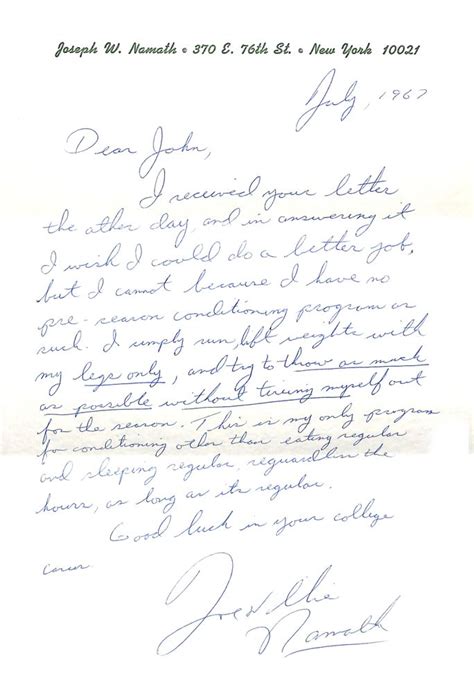 Joseph W. Namath • 370 E. 76th St. • New York 10021
July, 1967
Dear John,
I received your letter
the other day, and in answering it
I wish I could do a better job,
but I cannot because I have no
pre-season conditioning program as
such. I simply run, lift weights with
my legs only, and try to throw as much
as possible without tiring myself out
for the season. This is my only program
for conditioning other than eating regular
and sleeping regular, reguardless the
hours, as long as its regular.
Good luck in your college
career.
Joe Willie
Namath